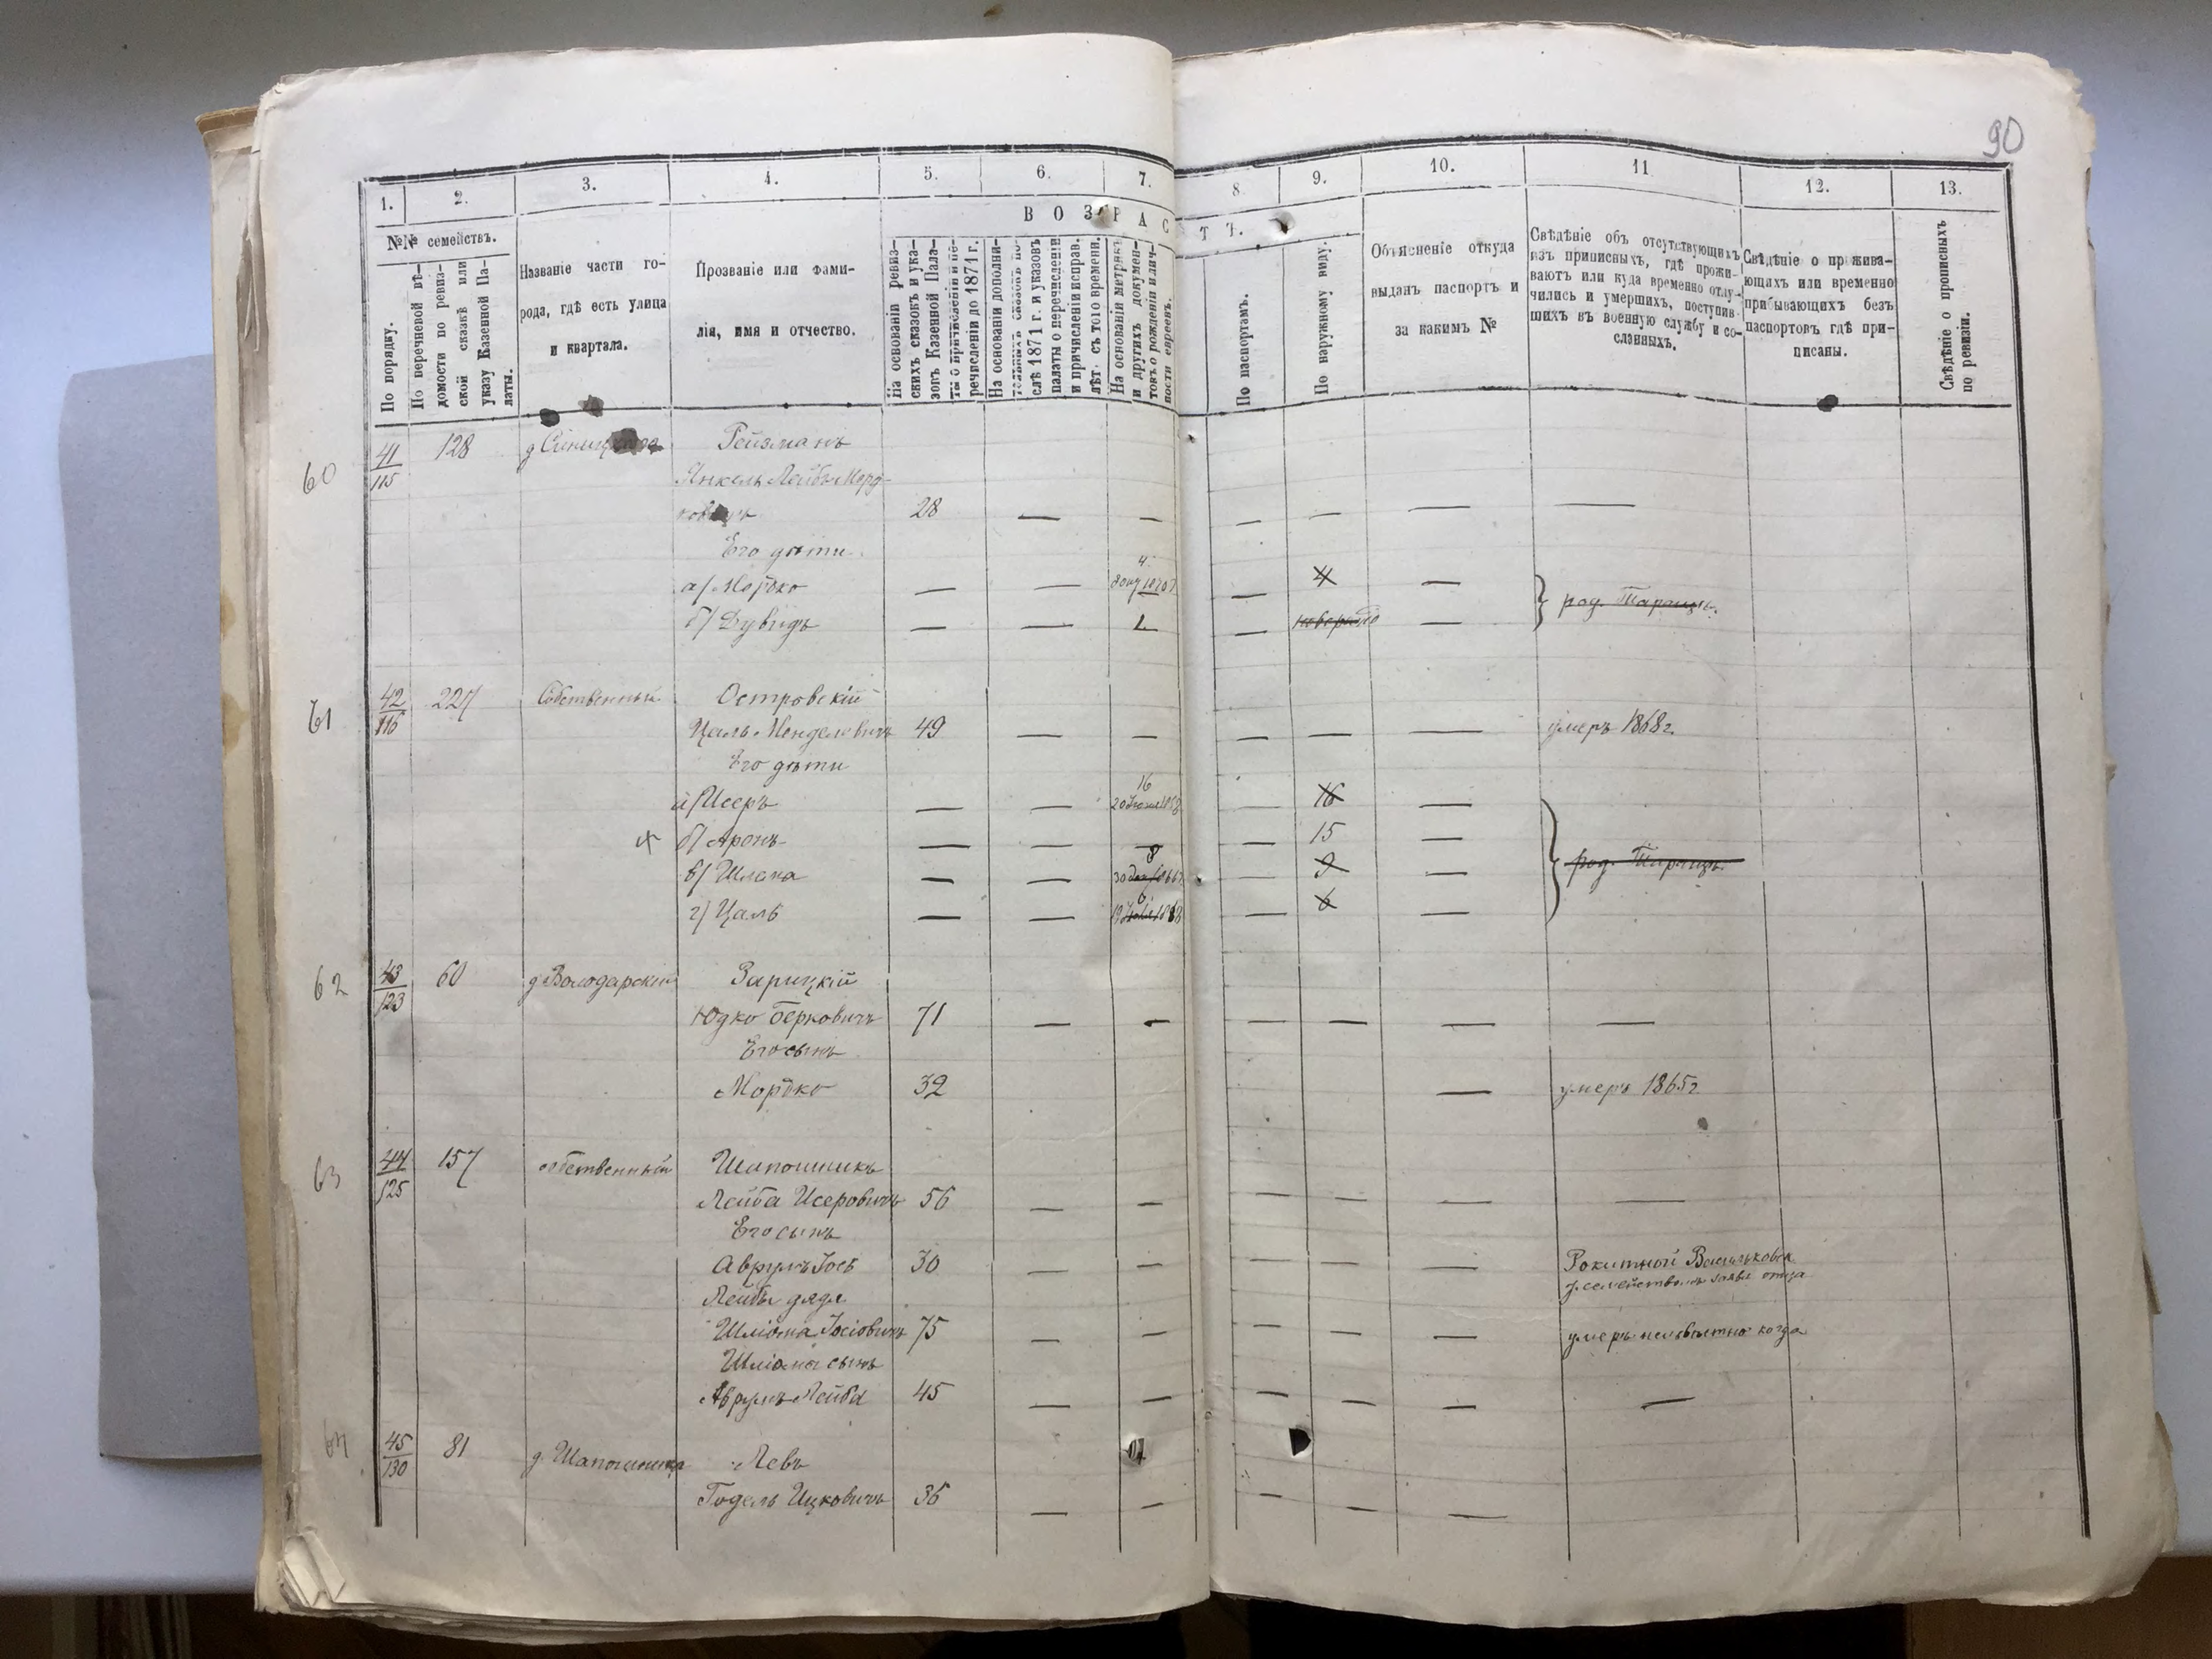 90
1. 2. 3. 4. 5. 6. 7. 8. 9. 10. 11 12. 13.
№№ семействъ.
По порядку.
По перечневой вѣ-
домости по ревиз-
ской сказкѣ или
указу Казенной Па-
латы.
Названіе части го-
рода, гдѣ есть улица
и квартала.
Прозваніе или фами-
лія, имя и отчество.
ВОЗРАСТЪ.
На основаніи ревиз-
скихъ сказокъ и ука-
зовъ Казенной Пала-
ты о причисленіи и пе-
речисленіи до 1871 г.
На основаніи дополни-
тельныхъ сказокъ по-
слѣ 1871 г. и указовъ
палаты о перечисленіи
и причисленіи исправ.
лѣт. съ того времени.
На основаніи метрикъ
и другихъ докумен-
товъ о рожденіи и лич-
ности евреевъ.
По паспортамъ.
По наружному виду.
Объясненіе откуда
выданъ паспортъ и
за какимъ №
Свѣдѣніе объ отсутствующихъ
изъ приписныхъ, гдѣ прожи-
ваютъ или куда временно отлу-
чились и умершихъ, поступив-
шихъ въ военную службу и со-
сланныхъ.
Свѣдѣніе о прожива-
ющихъ или временно
прибывающихъ безъ
паспортовъ гдѣ при-
писаны.
Свѣдѣніе о прописныхъ
по ревизіи.
60 41/115 128 Рейзманъ
Янкель Лейбъ Морд-
28 — — — — — —
Его дѣти
а/ Мордко — — 4 — 4 —
б/ Дувидъ — — — —
род. Таращѣ.
61 42/116 227 Собственный Островскій
Цаль Менделевичъ 49 — — — — — умеръ 1868 г.
Его дѣти
а/ Исеръ — — 16 — 16 —
б/ Аронъ — — — — 15 —
в/ Шлема — — 8 — 9 —
г/ Цаль — — 6 — 6 —
род. Таращѣ.
62 43/123 60 д Володарскій Зарицкій
Юдко Берковичъ 71 — — — — — —
Его сынъ
Мордко 32 — умеръ 1865 г
63 44/125 157 собственный Шапошникъ
Лейба Исеровичъ 56 — — — — — —
Его сынъ
Аврумъ Іось 30 — — — — — Рокитной Васильковск.
Лейбы дядя
Шліома Іосіовичъ 75 — — — — — умеръ неизвѣстно когда
Шліомы сынъ
Аврумъ Лейба 45 — — — — — —
64 45/130 81 д. Шапошника Левъ
Годель Ицковичъ 36 — — — — —